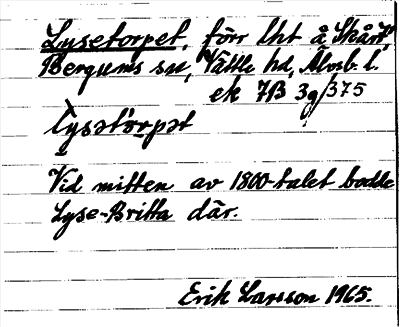 Lysetorpet, förr lht å Skår 1,
Bergums sn, Vättle hd, Älvsb. l.
ek 7B 3g/375
Lysetorpet
Vid mitten av 1800-talet bodde
Lyse-Britta där.
Erik Larsson 1965.